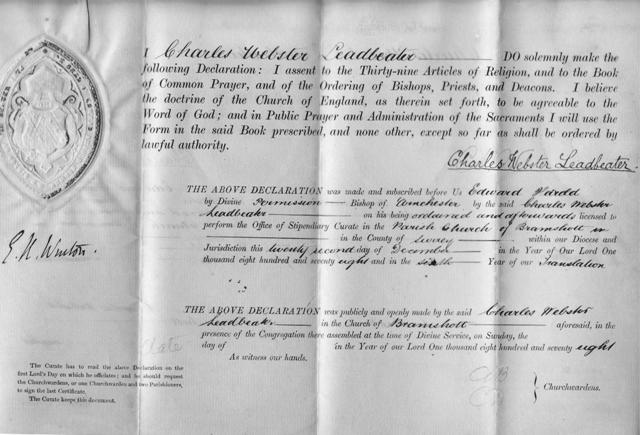 I Charles Webster Leadbeater DO solemnly make the
following Declaration: I assent to the Thirty-nine Articles of Religion, and to the Book
of Common Prayer, and of the Ordering of Bishops, Priests, and Deacons. I believe
the doctrine of the Church of England, as therein set forth, to be agreeable to the
Word of God; and in Public Prayer and Administration of the Sacraments I will use the
Form in the said Book prescribed, and none other, except so far as shall be ordered by
lawful authority.
Charles Webster Leadbeater.
THE ABOVE DECLARATION was made and subscribed before Us Edward Harold
by Divine Permission Bishop of Winchester by the said Charles Webster
Leadbeater on his being ordained and afterwards licensed to
perform the Office of Stipendiary Curate in the Parish Church of Bramshott in
in the County of within our Diocese and
Jurisdiction this twenty second day of December in the Year of Our Lord One
thousand eight hundred and seventy eight and in the sixth Year of our Translation
E. H. Winton.
THE ABOVE DECLARATION was publicly and openly made by the said Charles Webster
Leadbeater in the Church of Bramshott aforesaid, in the
presence of the Congregation there assembled at the time of Divine Service, on Sunday, the
day of in the Year of our Lord One thousand eight hundred and seventy eight
As witness our hands.
Churchwardens.
The Curate has to read the above Declaration on the
first Lord's Day on which he officiates; and he should request
the Churchwardens, or one Churchwarden and two Parishioners,
to sign the last Certificate.
The Curate keeps this document.